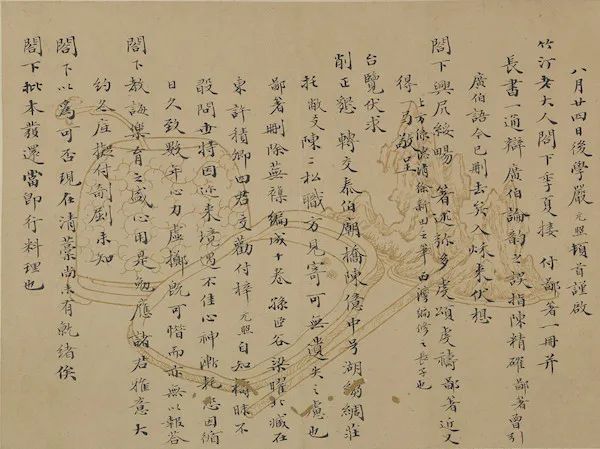 八月廿四日後學嚴元照頓首謹啟
竹汀老大人閣下季夏接 付鄙著一冊并
長書一通辯廣伯論韵之誤指陳精確鄙著曾引
廣伯語今已刪去矣入秋来伏想
閣下興居綏暢 著述弥多虔頌虔禱鄙著近又
得一 敬呈
徐新田 白灣編修之長子也
台覽伏求
削正懇 轉交泰伯廟橋陳億中号湖 綢莊
托敝友陳二松職方見寄可無遺失之慮也
鄙著刪除蕪穢編成十卷孫 谷梁曜北臧在
東許積卿四君交勸付梓元照自知檮昧不
敢問世特因近来境遇不佳心神漸耗恐因循
日久致数年心力虛擲既可惜而亦無以報荅
閣下教誨樂育之盛心用是勉應諸君雅意大
約冬 擬付剞劂未知
閣下以為可否現在清藁尚未有就緒俟
閣下批本發還當即行料理也